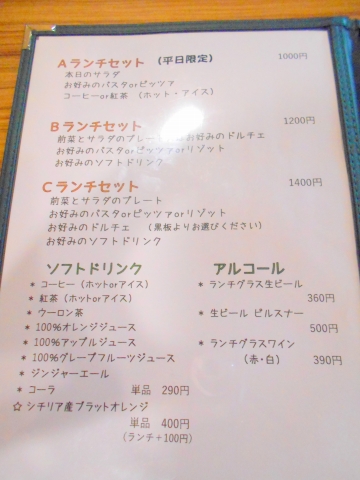 Aランチセット (平日限定) 1000円
本日のサラダ
お好みのパスタorピッツァ
コーヒーor紅茶 (ホット・アイス)
Bランチセット 1200円
前菜とサラダのプレート お好みのドルチェ
お好みのパスタorピッツァorリゾット
お好みのソフトドリンク
Cランチセット 1400円
前菜とサラダのプレート
お好みのパスタorピッツァorリゾット
お好みのドルチェ (黒板よりお選びください)
お好みのソフトドリンク
ソフトドリンク
* コーヒー(ホットorアイス)
* 紅茶(ホットorアイス)
* ウーロン茶
* 100%オレンジジュース
* 100%アップルジュース
* 100%グレープフルーツジュース
* ジンジャーエール
* コーラ 単品 290円
☆ シチリア産ブラットオレンジ
単品 400円
(ランチ+100円)
アルコール
* ランチグラス生ビール
360円
* 生ビール ピルスナー
500円
* ランチグラスワイン
(赤・白) 390円